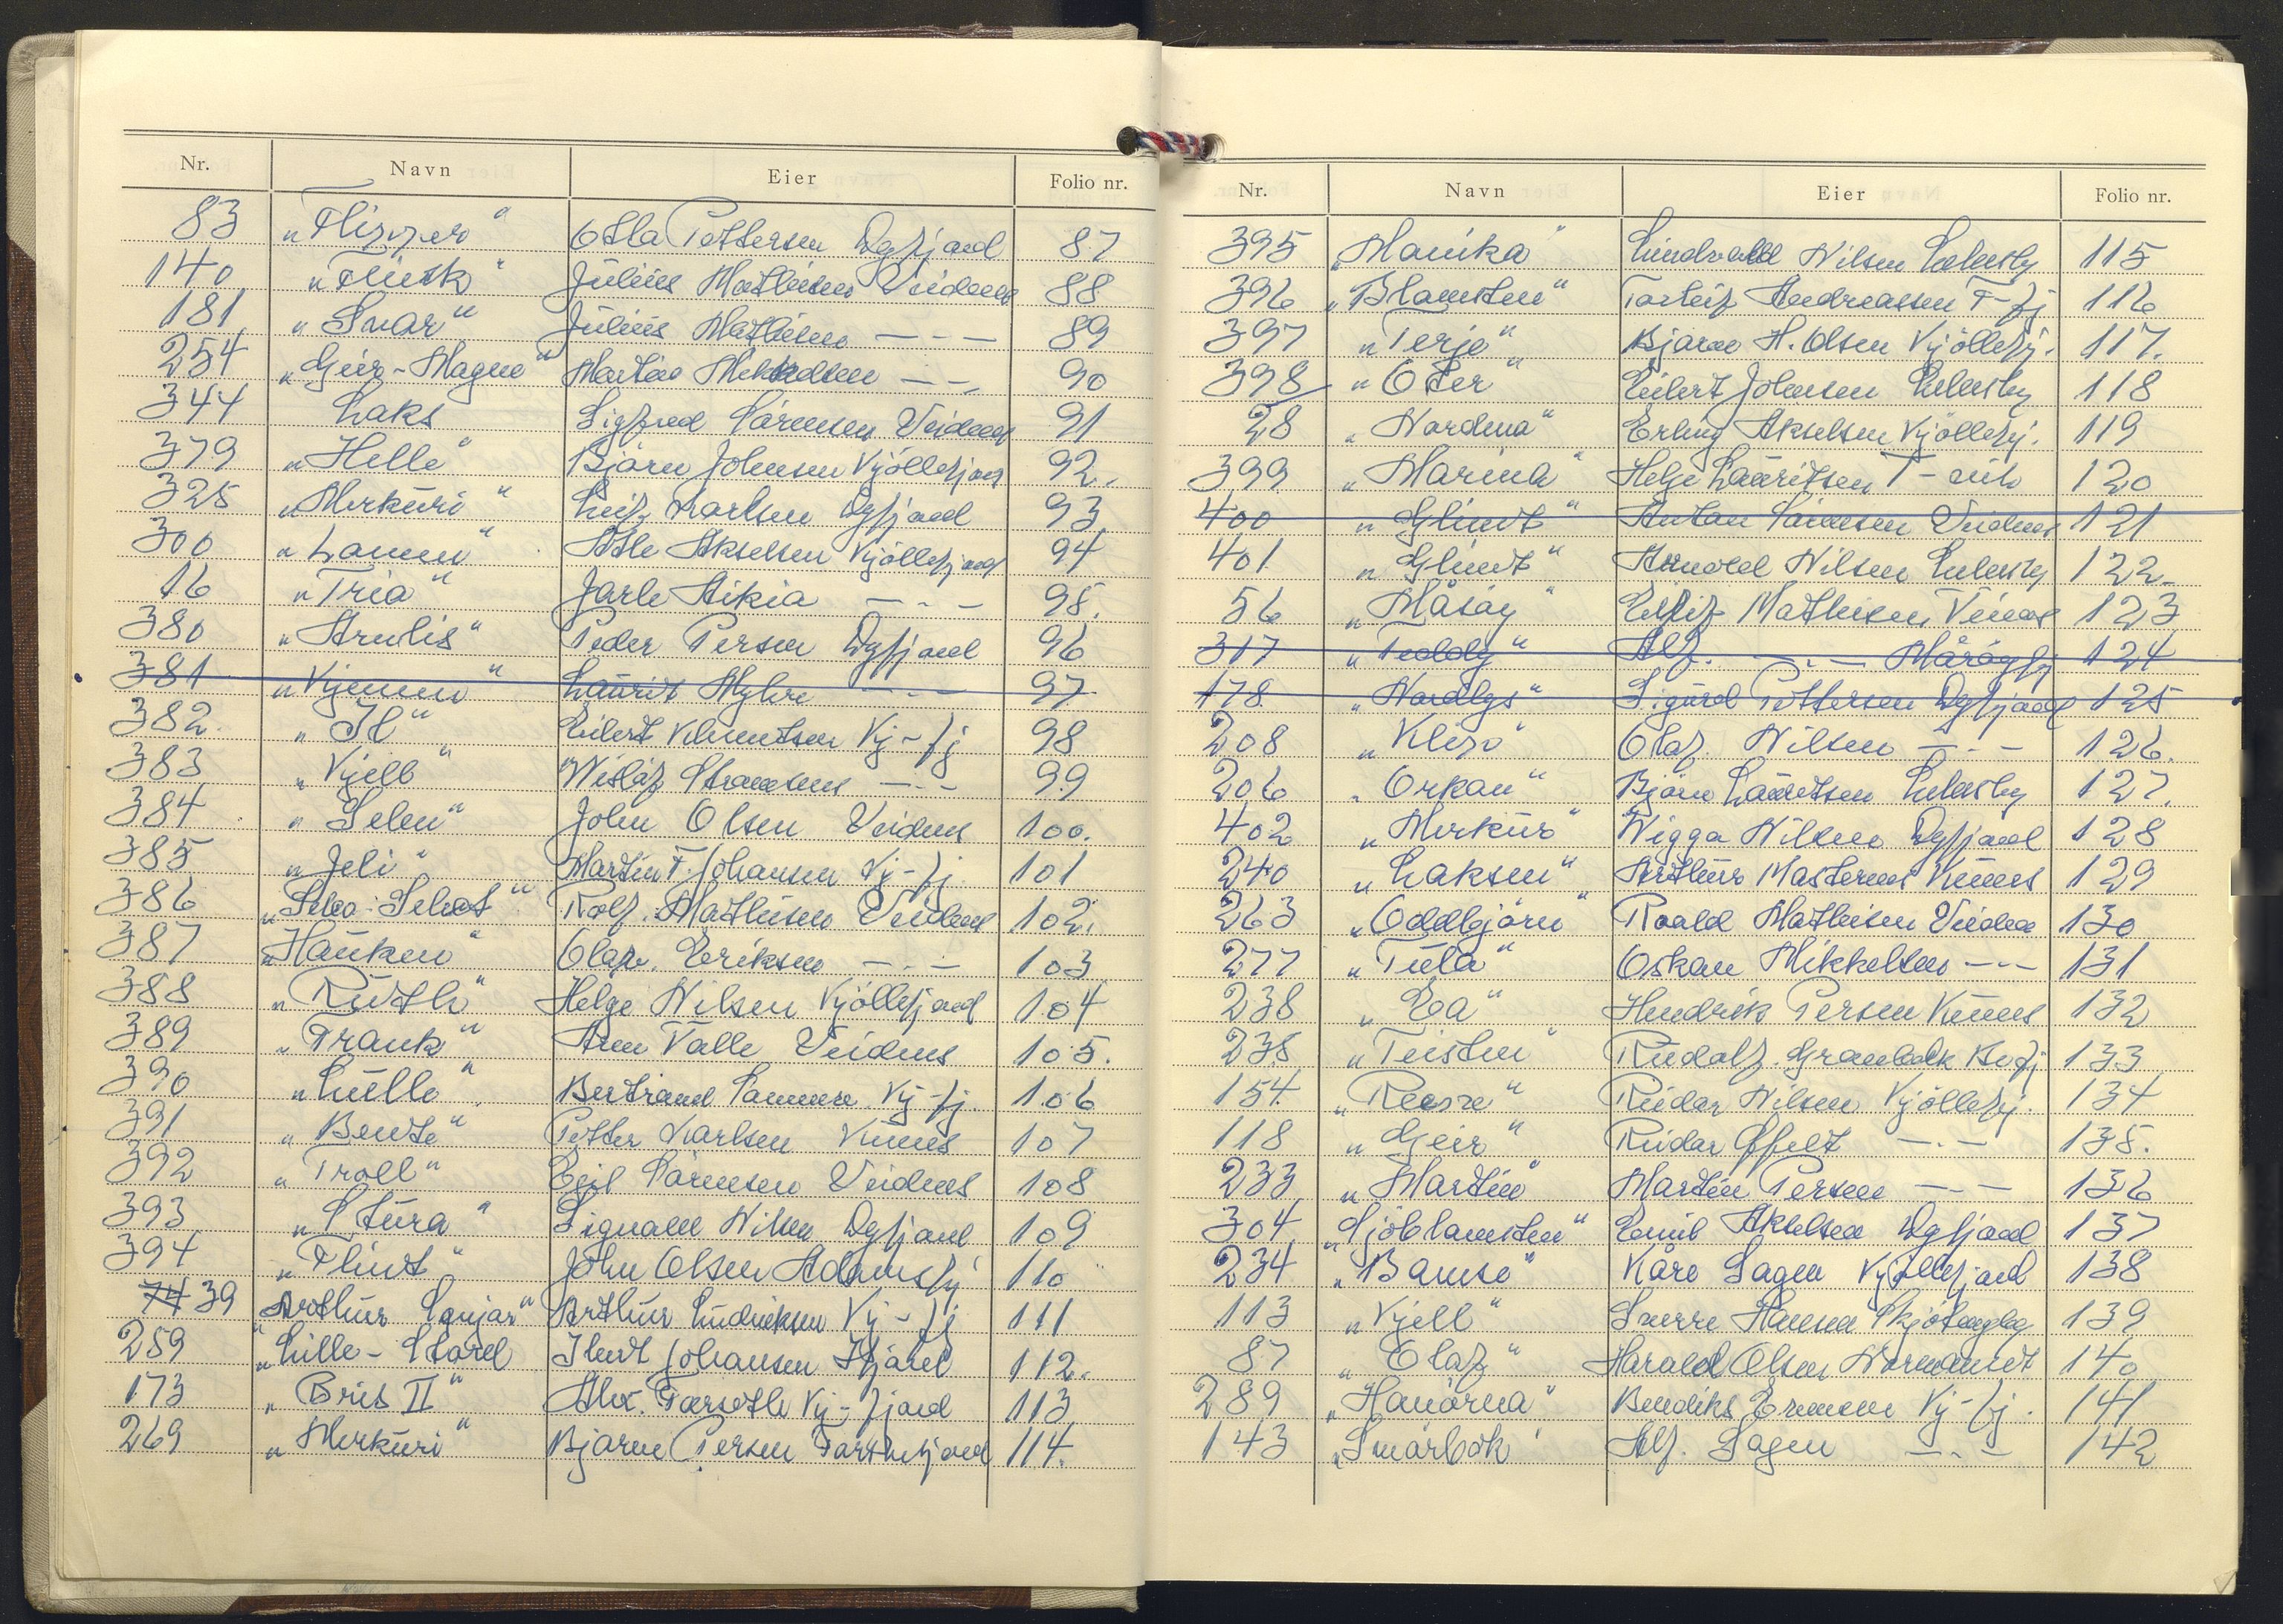 Nr. Navn Eier Folio nr.
83 „Flipper“ Otla Pettersen Dyfjord 87
140 „Flink“ Julius Mathisen Veidnes 88
181 „Snar“ Julius Mathisen —·— 89
254 „Geir-Magne“ Martin Mikkelsen —·— 90
344 Laks Sigfred Sörensen Veidnes 91
379 „Helle“ Björn Johnsen Kjöllefjord 92.
325 „Merkuri“ Leif Karlsen Dyfjord 93
300 „Lomen“ Atle Akselsen Kjöllefjord 94
16 „Tria“ Jarle Aikia —·— 95.
380 „Arnlis“ Peder Persen Dyfjord 96
381 „Kjemen“ Laurits Myhre —·— 97
382. „Il“ Eilert Klemetsen Kj-fj 98
383 „Kjell“ Wisløf Stramsen —·— 99
384 „Selen“ John Olsen Veidnes 100.
385 „Jeli“ Martin F. Johansen Kj-fj 101
386 Rolf Mathisen Veidnes 102.
387 „Hauken“ Olaf Eriksen —·— 103
388 „Ruth“ Helge Nilsen Kjöllefjord 104
389 „Frank“ Arne Valle Veidnes 105.
390 „Lullo“ Bertrand Sammen Kj-fj. 106
391 „Bente“ Petter Karlsen Kunes 107
392 „Troll“ Egil Sörensen Veidnes 108
393 „Stura“ Signald Nilsen Dyfjord 109
394 „Flint“ John Olsen Adamsfj 110
74 39 „Arthur Senjar“ Arthur Hindriksen Kj-fj 111
259 „Lille-Skarel Johansen Ifjord 112.
173 „Bris II“ Alex. Kj-fjord 113
269 „Merkuri“ Bjarne Persen Torskefjord 114.
Nr. Navn Eier Folio nr.
395 „Monika“ Lindvald Nilsen Lebesby 115
396 „Blomsten“ Torleif Andreassen T-fj 116
397 „Terje“ Bjarne H. Olsen Kjöllefj. 117.
398 „Oter“ Eilert Johnsen Lebesby 118
28 „Nordnes“ Erling Akselsen Kjöllefj. 119
399 „Marina“ Helge Lauritsen 120
400 „Glimt“ Anton Sörensen Veidnes 121
401 „Glimt“ Arnold Nilsen Lebesby 122
56 „Måsöy“ Eilif Mathisen Kunes 123
317 „Teddy“ Alf. —·— 124
178 „Nordlys“ Sigurd Pettersen Dyfjord 125
208 „Klipo“ Olaf Nilsen —·— 126.
206 „Orkan“ Björn Lauritsen Lebesby 127.
402 „Merkur“ Wigga Nilsen Dyfjord 128
240 „Laksen“ Arthur Masternes Kunes 129
263 „Oddbjörn“ Roald Mathisen Veidnes 130
277 „Tula“ Oskar Mikkelsen —·— 131
238 „Ea“ Hendrik Persen Kunes 132
235 „Teisten“ Rudolf Granbakk 133
154 Reidar Nilsen Kjöllefj. 134
118 „Geir“ Reidar Offelt —·— 135.
233 „Martin“ Martin Persen —·— 136
304 „Sjöblomsten“ Emil Akselsen Dyfjord 137
234 „Bamse“ Kåre Sagen Kjöllefjord 138
113 „Kjell“ Sverre Hansen Skjötningberg 139
87 „Olaf“ Harald Olsen Normanvt 140
289 Bendiks Ermesen Kj-fj. 141
143 „Smörbok“ Alf. Sagen —·— 142